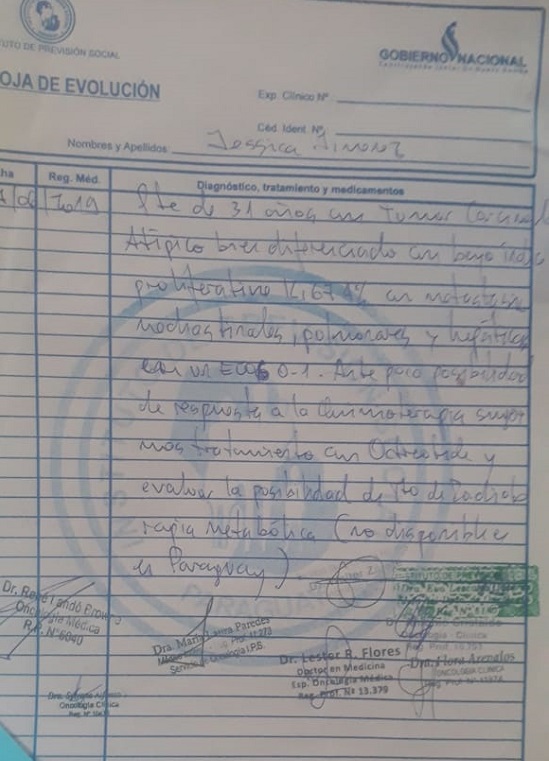 TUTO DE PREVISIÓN SOCIAL
GOBIERNO NACIONAL
OJA DE EVOLUCIÓN
Exp. Clínico Nº
Céd. Ident. Nº
Nombres y Apellidos Jessica Jimenez
ha Reg. Méd. Diagnóstico, tratamiento y medicamentos
/06/2019 Pte de 31 años con Tumor
Atípico bien diferenciado con bajo
proliferativo Ki67 4% con metástasis
mediastinales, pulmonares y hepáticas
con un ECOG 0-1. Ante poca posibilidad
de respuesta a la Quimioterapia
mos tratamiento con Octreotide y
evaluar la posibilidad de tto de Radiote
rapia Metabólica (no disponible
en Paraguay)
Oncología Médica
Dra. María Paredes
Servicio de Oncología I.P.S.
Dr. Lestor R. Flores
Doctor en Medicina
Esp. Oncología Médica
Reg. Prof. Nº 13.379
Dra. Flora Arevalos
ONCOLOGIA CLINICA
Oncología Clínica
PARAGUAY